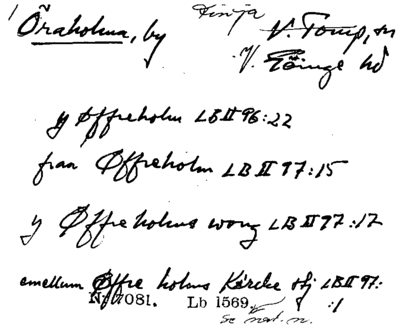 Öraholma, by Finja V. Tomp, sn
V. Göinge hd
y Øffreholm LB II 96:22
fran Øffreholm LB II 97:15
y Øffreholms wong LB II 97:17
emellum Øffre holms Kircke shj LB II 97:
:1
Nr 7081. Lb 1569.
se ned. n.